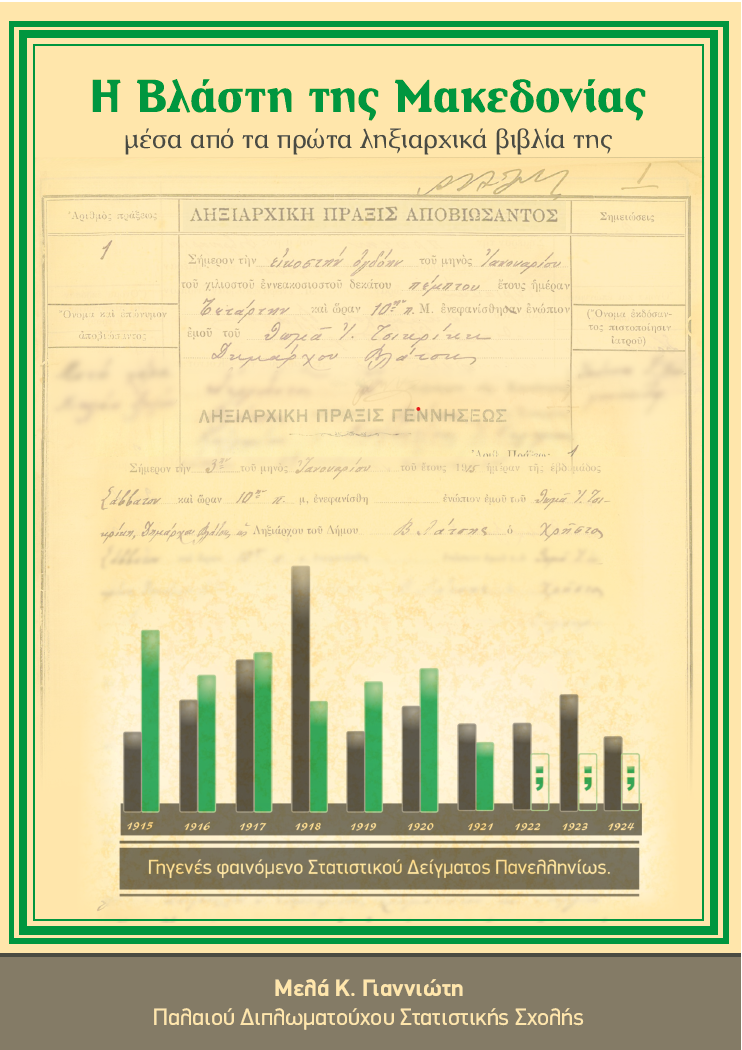 Η Βλάστη της Μακεδονίας
μέσα από τα πρώτα ληξιαρχικά βιβλία της
1
Ἀριθμὸς πράξεως
ΛΗΞΙΑΡΧΙΚΗ ΠΡΑΞΙΣ ΑΠΟΒΙΩΣΑΝΤΟΣ
Σημειώσεις
1
Σήμερον τὴν εἰκοστὴν ὀγδόην τοῦ μηνὸς Ἰανουαρίου
τοῦ χιλιοστοῦ ἐννεακοσιοστοῦ δεκάτου πέμπτου ἔτους ἡμέραν
Ὄνομα καὶ ἐπώνυμον
ἀποβιώσαντος
Τετάρτην καὶ ὥραν 10ην π. Μ. ἐνεφανίσθησαν ἐνώπιον
(Ὄνομα ἐκδόσαν-
τος πιστοποίησιν
ἰατροῦ)
ἐμοῦ τοῦ Θωμᾶ Ἰ. Τσικρίκη
Δημάρχου Βλάτσης
ΛΗΞΙΑΡΧΙΚΗ ΠΡΑΞΙΣ ΓΕΝΝΗΣΕΩΣ
Ἀριθ. Πράξεως 1
Σήμερον τὴν 3ην τοῦ μηνὸς Ἰανουαρίου τοῦ ἔτους 1915 ἡμέραν τῆς ἑβδομάδος
Σάββατον καὶ ὥραν 10ην π. μ, ἐνεφανίσθη ἐνώπιον ἐμοῦ τοῦ Θωμᾶ Ἰ. Τσι-
κρίκη, Δημάρχου Βλάτσης, ὡς Ληξιάρχου τοῦ Δήμου Βλάτσης ὁ Χρῆστος
; ; ;
1915 1916 1917 1918 1919 1920 1921 1922 1923 1924
Γηγενές φαινόμενο Στατιστικού Δείγματος Πανελληνίως.
Μελά Κ. Γιαννιώτη
Παλαιού Διπλωματούχου Στατιστικής Σχολής